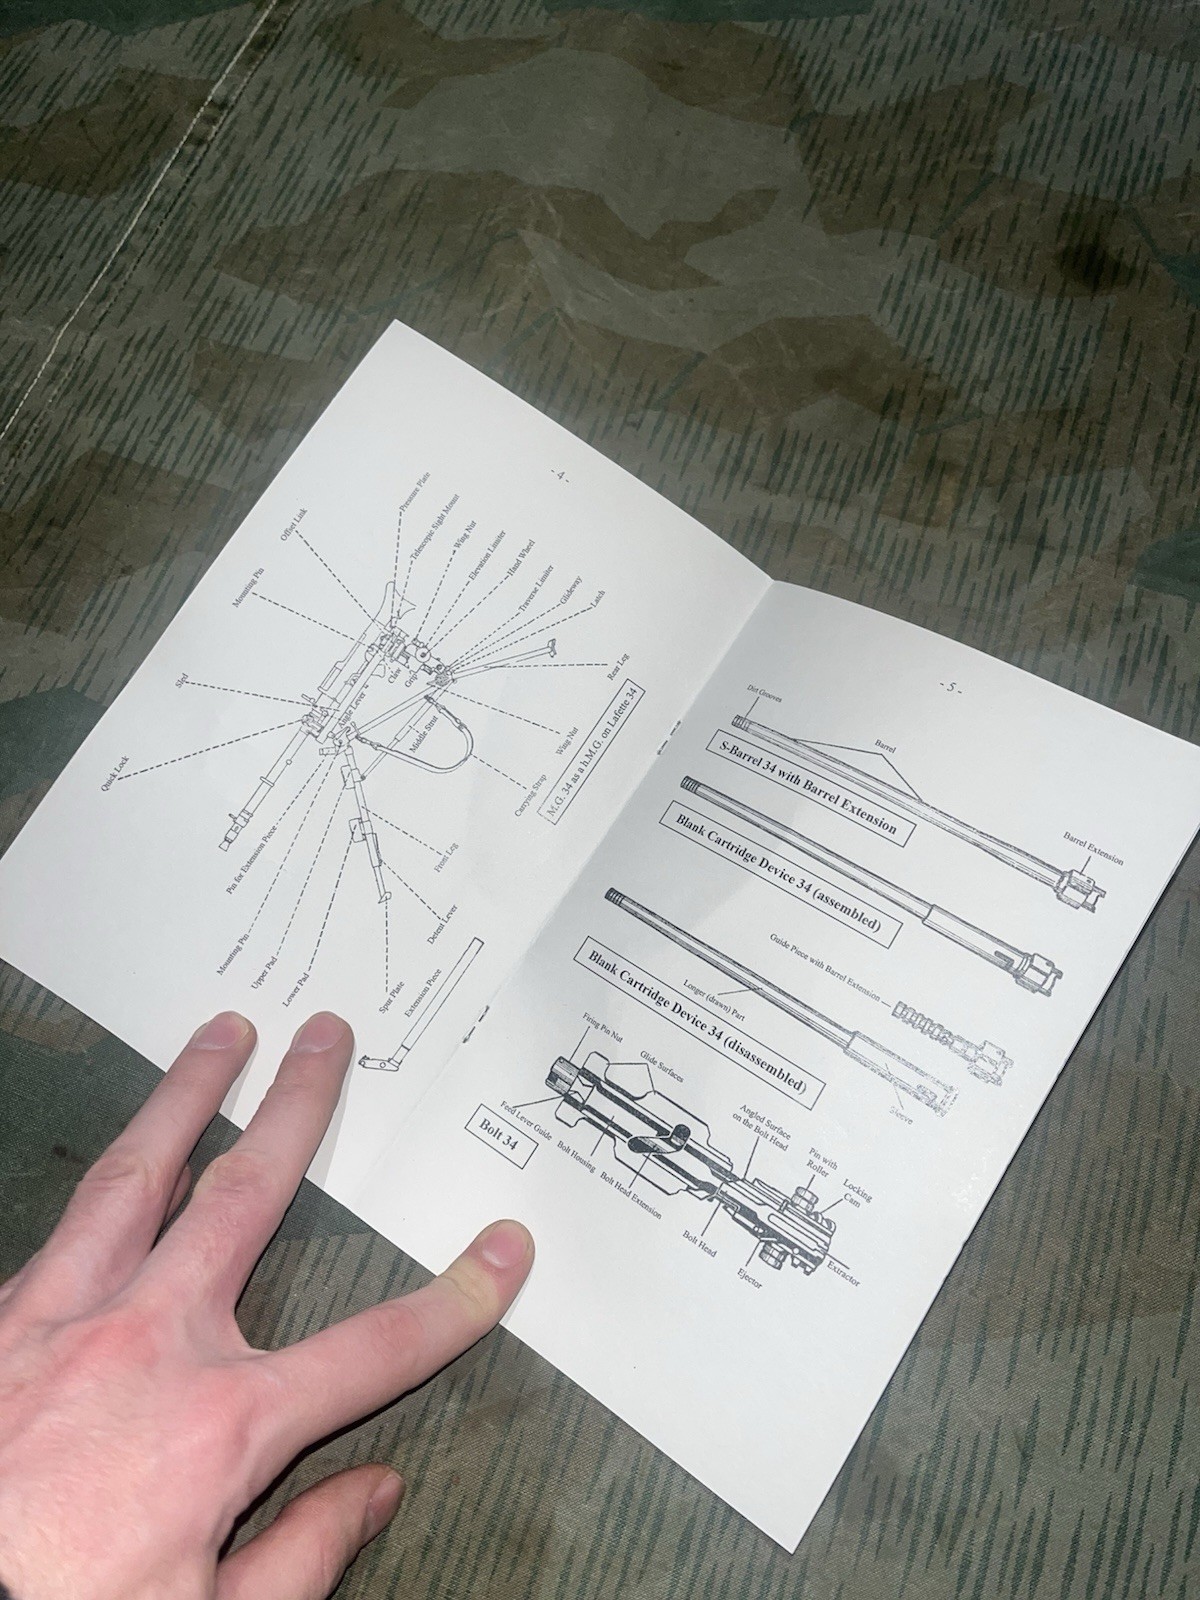 - 4 -
Pressure Plate
Telescopic Sight Mount
Wing Nut
Elevation Limiter
Hand Wheel
Traverse Limiter
Glideway
Latch
Offset Link
Mounting Pin
Sled
Quick Lock
Claw
Grip
Angle Lever
Middle Strut
Rear Leg
Wing Nut
Carrying Strap
Pin for Extension Piece
Mounting Pin
Upper Pad
Lower Pad
Front Leg
Detent Lever
Spur Plate
Extension Piece
M.G. 34 as a h.M.G. on Lafette 34
- 5 -
Dirt Grooves
Barrel
Barrel Extension
S-Barrel 34 with Barrel Extension
Blank Cartridge Device 34 (assembled)
Guide Piece with Barrel Extension
Longer (drawn) Part
Sleeve
Blank Cartridge Device 34 (disassembled)
Firing Pin Nut
Glide Surfaces
Angled Surface
on the Bolt Head
Pin with
Roller
Locking
Cam
Feed Lever Guide
Bolt Housing
Bolt Head Extension
Bolt Head
Ejector
Extractor
Bolt 34